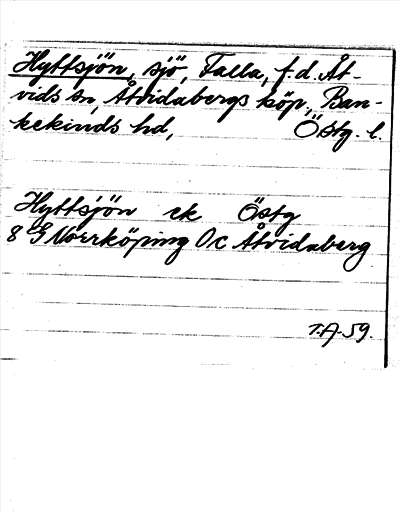 Hyttsjön, sjö, Falla, f.d. Åt-
vids sn, Åtvidabergs köp., Ban-
kekinds hd, Östg. l.
Hyttsjön ek Östg
8 G Norrköping 0c Åtvidaberg
T.A. 59.